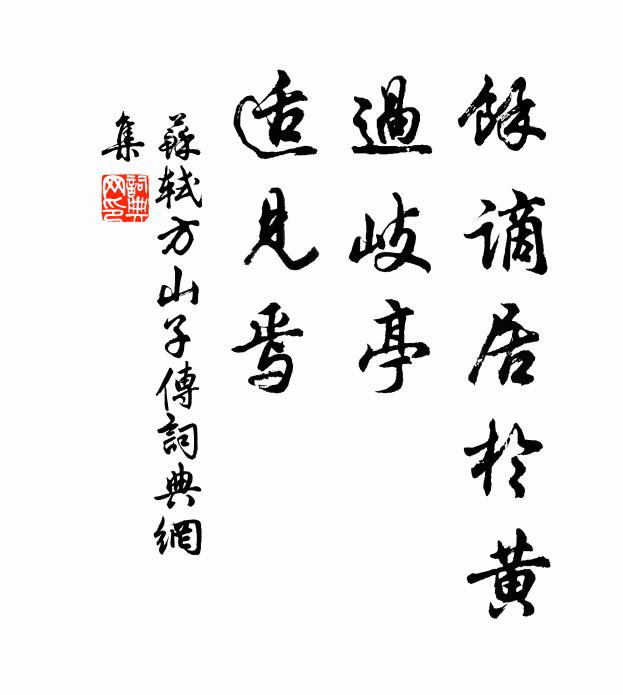 餘謫居於黃
過岐亭
适見焉
蘇軾方山子傳詞典網
集
詞典
网印